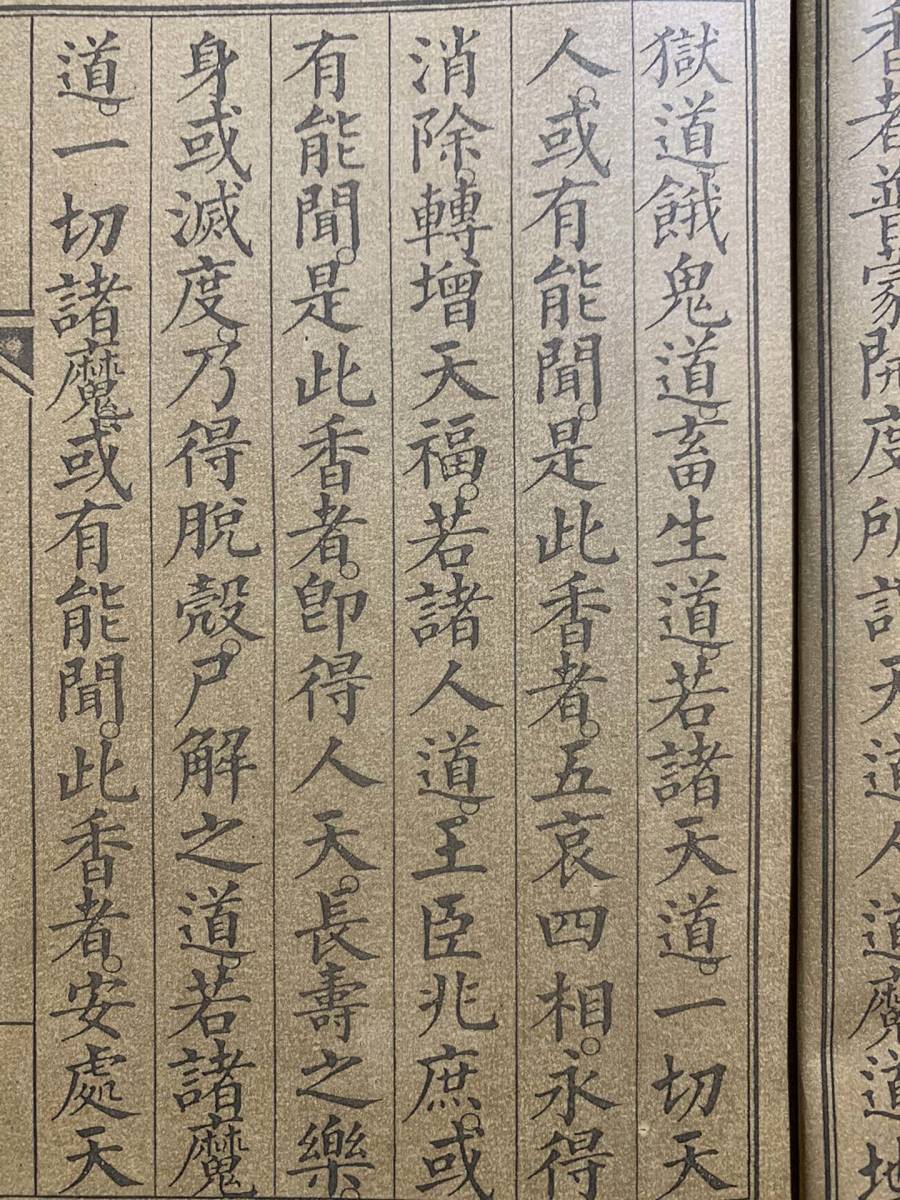 香者普蒙開度所謂天道人道魔道地
獄道餓鬼道。畜生道。若諸天道。一切天
人。或有能聞。是此香者。五哀四相。永得
消除。轉增天福。若諸人道。王臣兆庶。或
有能聞。是此香者。卽得人天。長壽之樂。
身或滅度。乃得脫殼。尸解之道。若諸魔
道。一切諸魔或有能聞。此香者。安處天